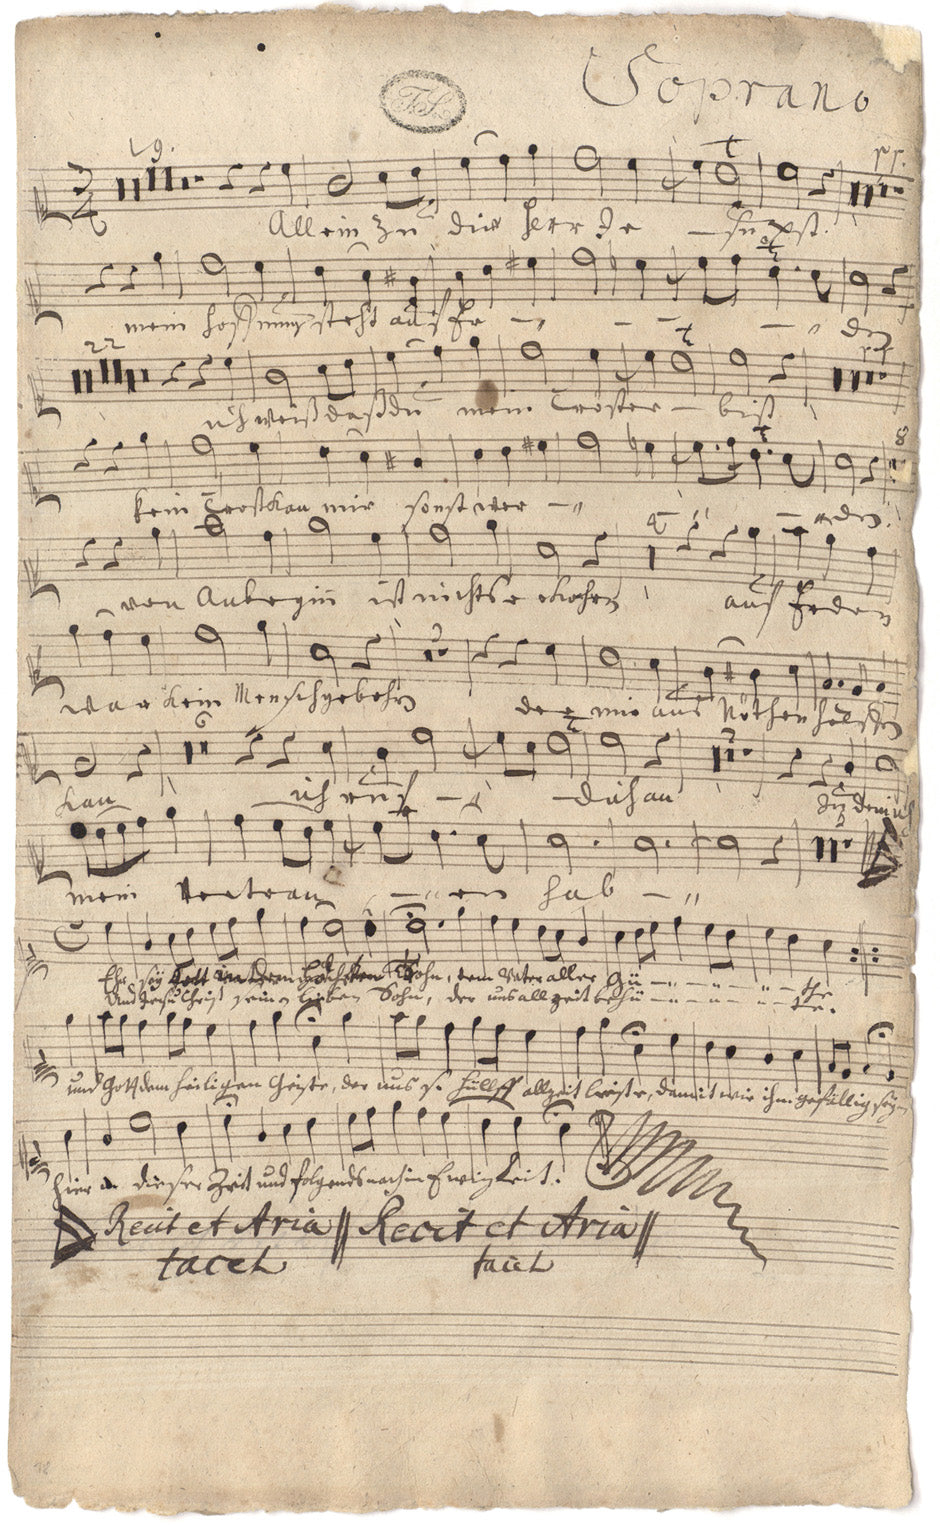 Soprano
F.S.
19.
Allein zu dir Herr Je - su xst.
mein hoffnung steht auf Er - - - den
22
ich weiß daß du mein Tröster - bist
8
kein Trost kan mir sonst wer - - - den.
4
von Anbegin ist nichts erkohrn auf Erden
2
war kein Mensch gebohrn der mir aus Nöthen helffen
6 2
kan ich ruff - - dich an zu dem ich
2
mein vertrau - - en hab - "
Ehr sey Gott in dem höchsten Thron, dem Vater aller Gü - - - - - the
und Jesu Christ seinen lieben Sohn, der uns allzeit behü - - - - - te.
und Gott dem heiligen Geiste, der uns s. hülff allzeit leiste, damit wir ihm gefällig seyn
hier in dieser Zeit und folgends nach in Ewigkeit.
Recit et Aria || Recit et Aria ||
tacet tacet